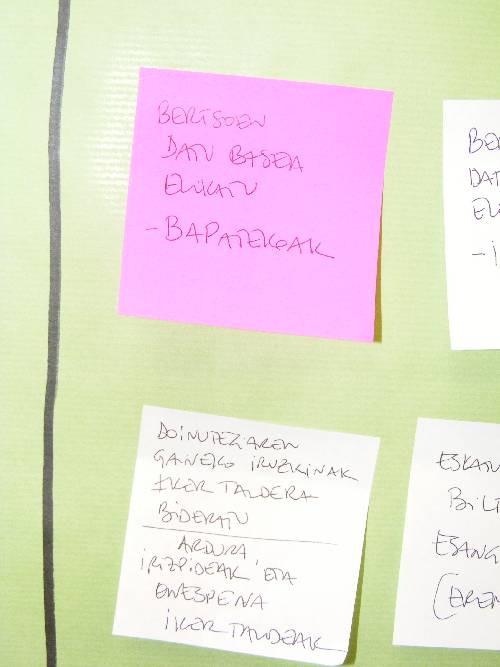 BERTSOEN
DATU BASEA
ELIKATU
- BAPATEKOAK
BER
DAT
ELI
- I
DOINUTEGIAREN
GAINEKO IRUZKINAK
IKER TALDERA
BIDERATU
ARDURA,
IRIZPIDEAK ETA
EREESPENA
IKER TALDEAK
ESKATU
BILT
ESANG
(EREM